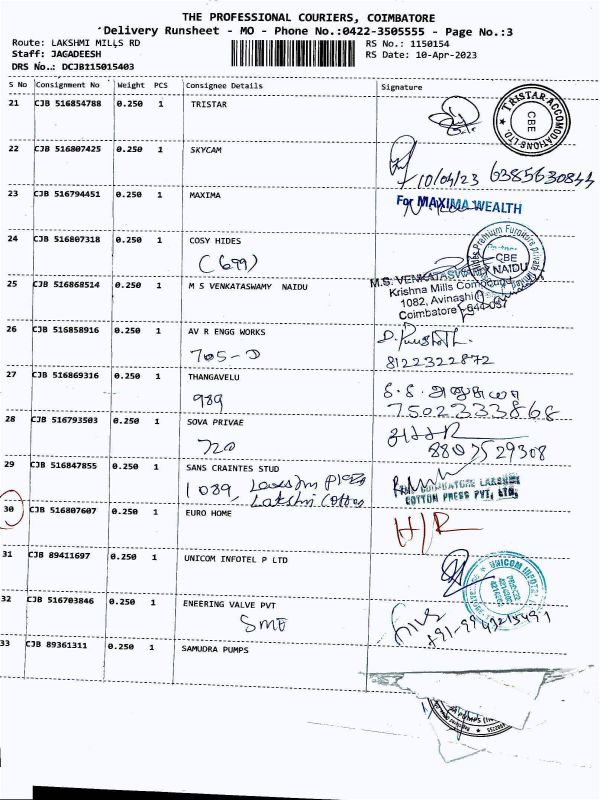 THE PROFESSIONAL COURIERS, COIMBATORE
Delivery Runsheet - MO - Phone No.:0422-3505555 - Page No.:3
Route: LAKSHMI MILLS RD
RS No.: 1150154
Staff: JAGADEESH
RS Date: 10-Apr-2023
DRS No.: DCJB115015403
S No Consignment No Weight PCS Consignee Details Signature
21 CJB 516854788 0.250 1 TRISTAR
TRISTAR ACCOMODATIONS LTD. CBE
22 CJB 516807425 0.250 1 SKYCAM
10/04/23 6385630844
23 CJB 516794451 0.250 1 MAXIMA
For MAXIMA WEALTH
24 CJB 516807318 0.250 1 COSY HIDES
(699)
CBE
25 CJB 516868514 0.250 1 M S VENKATASWAMY NAIDU
M.S. VENKATASWAMY NAIDU
Krishna Mills Compound
1082, Avinashi
Coimbatore
26 CJB 516858916 0.250 1 AV R ENGG WORKS
705-D
8122322872
27 CJB 516869316 0.250 1 THANGAVELU
989
7502333868
28 CJB 516793503 0.250 1 SOVA PRIVAE
720
8807529308
29 CJB 516847855 0.250 1 SANS CRAINTES STUD
1089,
Lakshmi Cotton
COIMBATORE LAKSHMI
COTTON PRESS PVT, LTD,
30 CJB 516807607 0.250 1 EURO HOME
H/R
31 CJB 89411697 0.250 1 UNICOM INFOTEL P LTD
UNICOM INFOTEL
32 CJB 516703846 0.250 1 ENEERING VALVE PVT
SME
+91-9943215491
33 CJB 89361311 0.250 1 SAMUDRA PUMPS
PUMPS